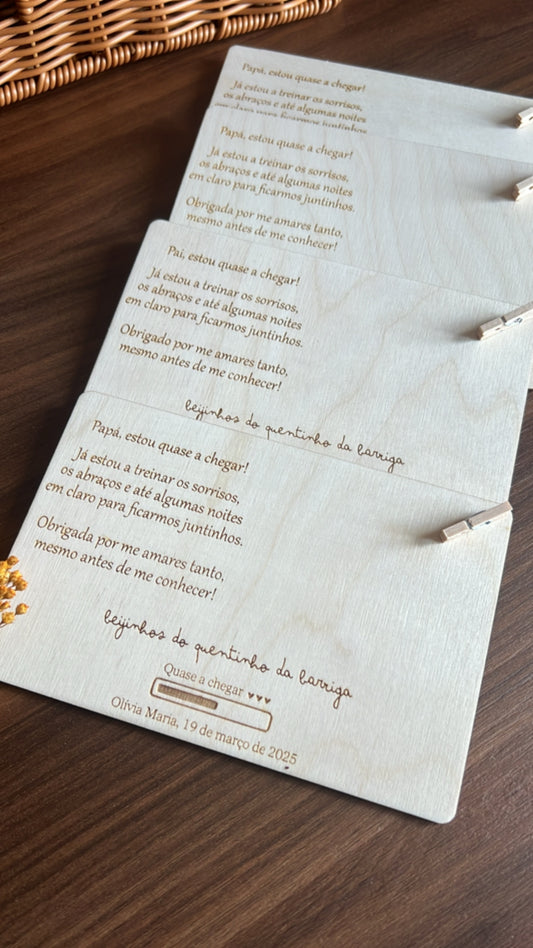 Papá, estou quase a chegar!
Já estou a treinar os sorrisos,
os abraços e até algumas noites
em claro para ficarmos juntinhos
Papá, estou quase a chegar!
Já estou a treinar os sorrisos,
os abraços e até algumas noites
em claro para ficarmos juntinhos.
Obrigada por me amares tanto,
mesmo antes de me conhecer!
Pai, estou quase a chegar!
Já estou a treinar os sorrisos,
os abraços e até algumas noites
em claro para ficarmos juntinhos.
Obrigado por me amares tanto,
mesmo antes de me conhecer!
beijinhos do quentinho da barriga
Papá, estou quase a chegar!
Já estou a treinar os sorrisos,
os abraços e até algumas noites
em claro para ficarmos juntinhos.
Obrigada por me amares tanto,
mesmo antes de me conhecer!
beijinhos do quentinho da barriga
Quase a chegar ♥♥♥
Olívia Maria, 19 de março de 2025